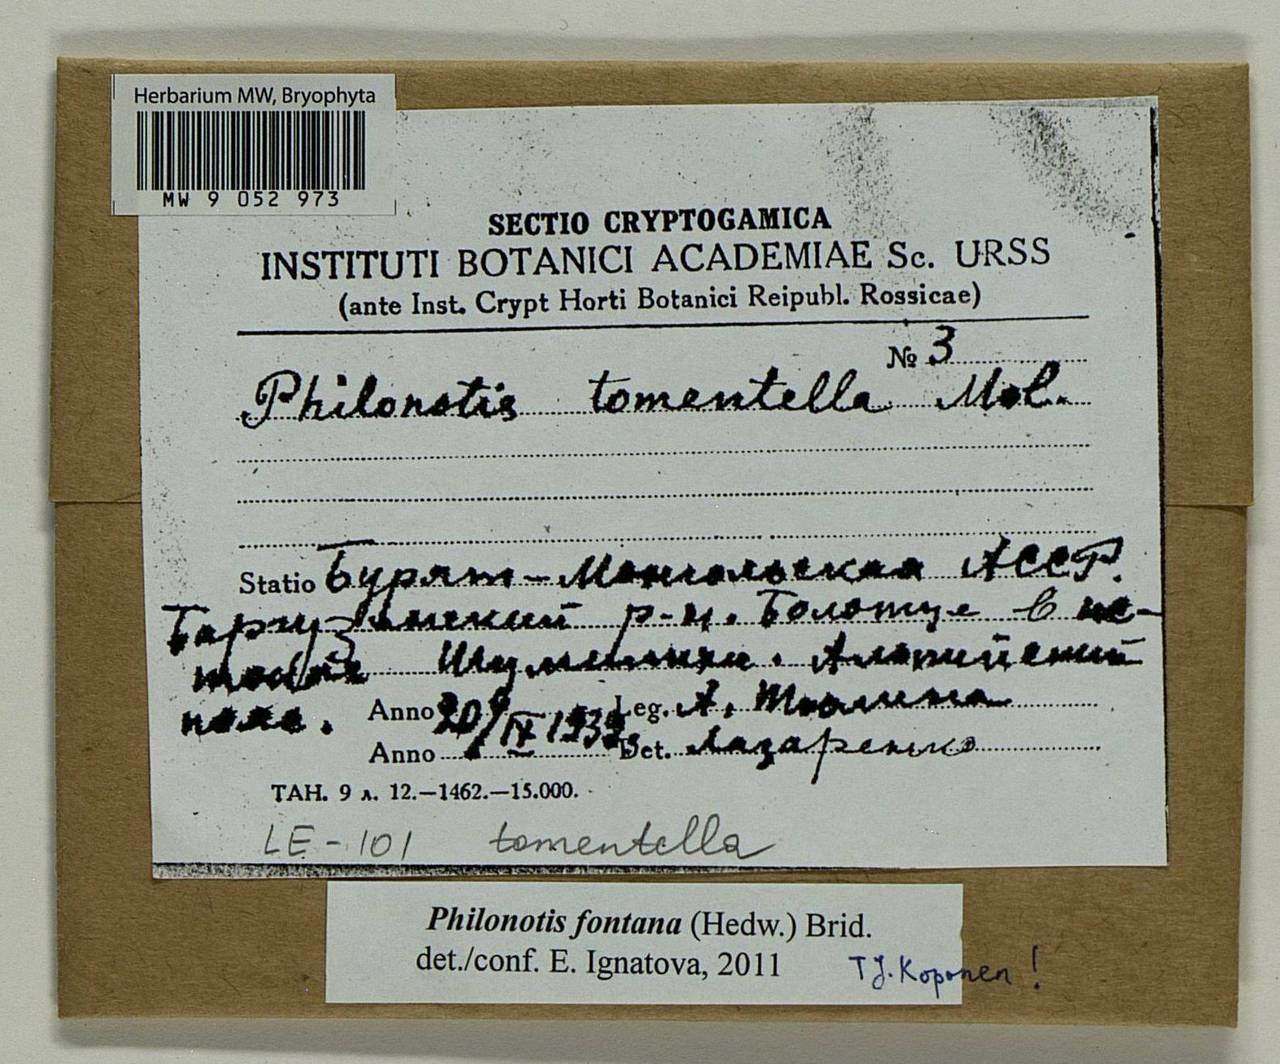 Herbarium MW, Bryophyta
MW 9 052 973
SECTIO CRYPTOGAMICA
INSTITUTI BOTANICI ACADEMIAE Sc. URSS
(ante Inst. Crypt Horti Botanici Reipubl. Rossicae)
№ 3
Philonotis tomentella Mol.
Statio Бурят-Монгольская АССР.
Баргузинский р-н. Болотце в
Альпийский
пояс. Anno 20/IX 193 Leg. А.
Anno Det. Лазаренко
ТАН. 9 л. 12.—1462.—15.000.
LE-101 tomentella
Philonotis fontana (Hedw.) Brid.
det./conf. E. Ignatova, 2011
T.J. Koponen!